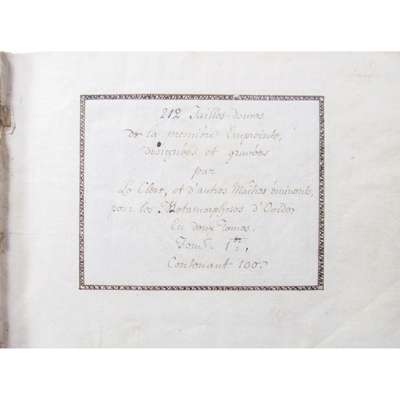 212 Tailles-douces
de la première Empreinte,
dessignées et gravées
par
Le Clerc, et d'autres Maitres éminents,
pour les Metamorphoses d'Ovide,
En deux Tomes.
Tom. 1er,
Contenant 100.